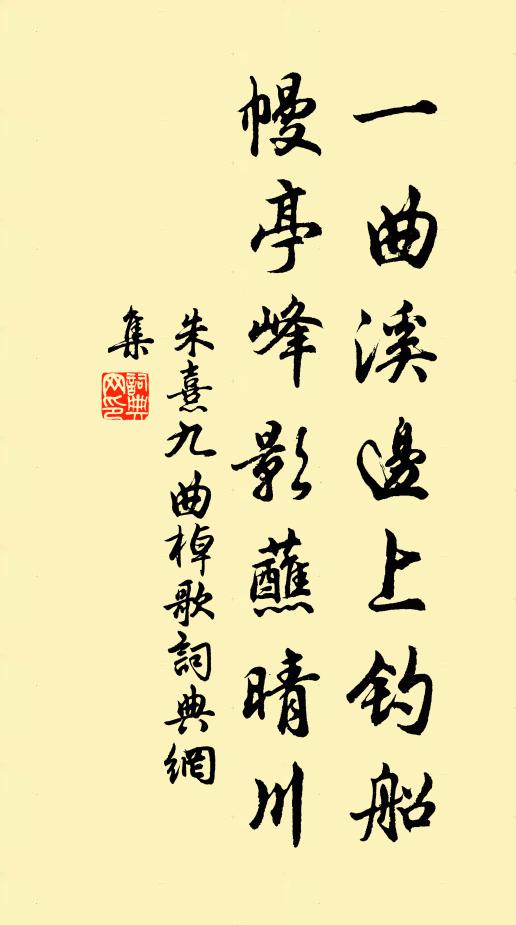 一曲溪邊上釣船
幔亭峰影蘸晴川
朱熹九曲棹歌詞典網
集
詞典
网印